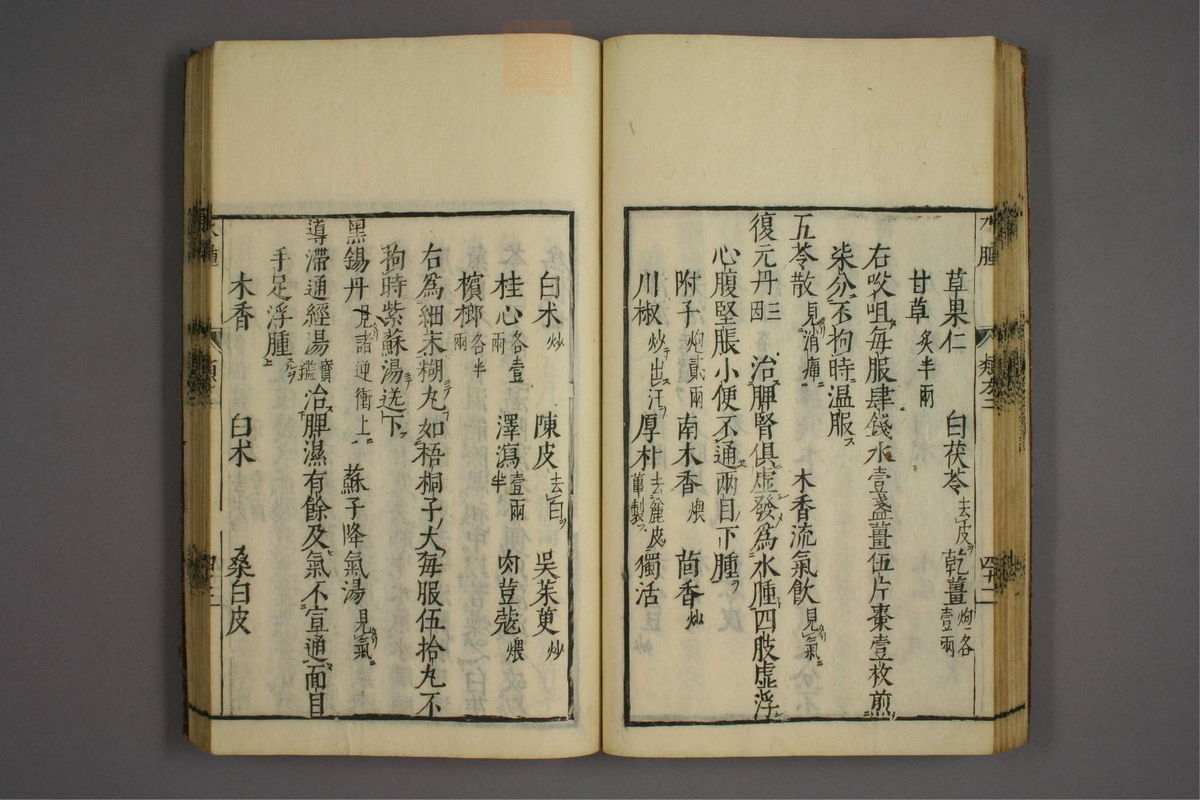 水腫 類方二 四十二
草果仁 白茯苓去皮ヲ 乾薑炮各壹兩
甘草炙半兩
右㕮咀毎服肆錢水壹盞薑伍片棗壹枚煎
柒分不拘時温服
五苓散見消癉 木香流氣飮見氣
復元丹三因 治脾腎俱虛發爲水腫四肢虛浮
心腹堅脹小便不通兩目下腫
附子炮貳兩 南木香煨 茴香炒
川椒炒出汗 厚朴去麁皮薑製 獨活
白朮炒 陳皮去白 吳茱萸炒
桂心各壹兩 澤瀉壹兩半 肉荳蔲煨
檳榔各半兩
右爲細末糊丸如梧桐子大毎服伍拾丸不
拘時紫蘇湯送下
黑錫丹見諸逆衝上 蘇子降氣湯見氣
導滯通經湯寶鑑 治脾濕有餘及氣不宣通面目
手足浮腫
木香 白朮 桑白皮
水腫 類 四十三